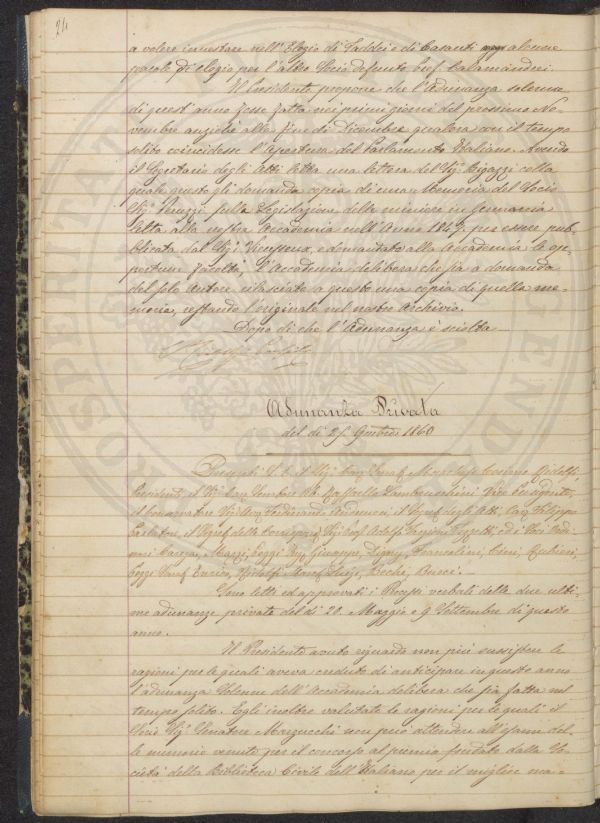 24
a volere innestare nell'Elogio di Taddei e di Casanti alcune
parole di elogio per l'altro Socio defunto Prof. Calamandrei.
Il Presidente propone che l'Adunanza solenne
di quest'anno fosse fatta nei primi giorni del prossimo No-
vembre anziché alla fine di Dicembre qualora con il tempo
solito coincidesse l'apertura del Parlamento Italiano. Avendo
il Segretario degli Atti letta una lettera del Sig. Bigazzi colla
quale questo gli domanda copia di una Memoria del Socio
Sig. Peruzzi sulla Legislazione delle miniere in Germania
letta alla nostra Accademia nell'Anno 1847. per essere pub-
blicata dal Sig. Vieusseux, e domandato alla Accademia le op-
portune facoltà, l'Accademia delibera che sia a domanda
del solo Autore rilasciato a questo una copia di quella me-
moria, restando l'originale nel nostro Archivio.
Dopo di che l'Adunanza è sciolta
Adunanza Privata
del dì 25. 9mbre 1860
Presenti S. E. il Sig. Cav. Marchese Cosimo Ridolfi
Presidente, il Sig. Cav. Senatore Ab. Raffaello Lambruschini Vice Presidente,
il Conservatore Ferdinando Andreucci, il Segret. degli Atti, Cav. Filippo
il Segret. delle Corrispond. Sig. Prof. Adolfo Targioni Tozzetti, ed i Soci Ordi-
nari Mazzi, Poggi Giuseppe, Digny, Franceolini, Cini, Rubieri,
Poggi Enrico, Ridolfi March. Luigi, Becchi, Busacca.
Sono letti ed approvati i Processi verbali delle due ulti-
me adunanze private del dì 20. Maggio e 9 Settembre di questo
anno.
Il Presidente avuto riguardo non più sussistere le
ragioni per le quali aveva creduto di anticipare in questo anno
l'adunanza Solenne dell'Accademia delibera che sia fatta nel
tempo solito. Egli inoltre valutate le ragioni per le quali il
Socio Sig. Senatore Marzucchi non può attendere all'esame del-
le memorie venute per il concorso al premio fondato dalla So-
cietà della Biblioteca Civile dell'Italiano per il miglior ma-